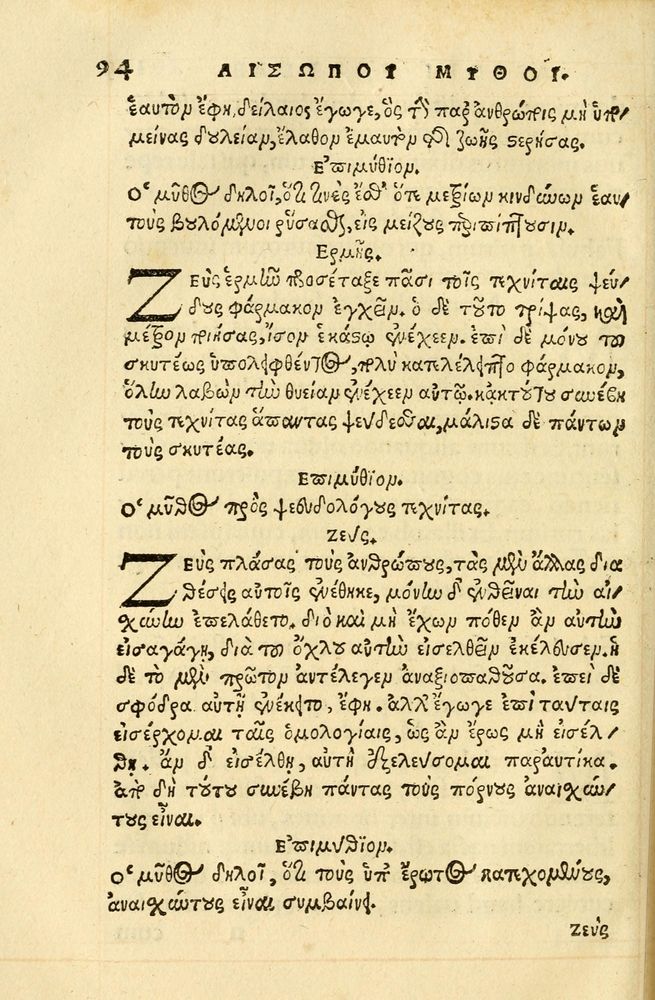 94 ΑΙΣΩΠΟΥ ΜΥΘΟΙ.
ἑαυτὸν ἔφη, δείλαιος ἔγωγε, ὃς τὴν παρ' ἀνθρώποις μὴ ὑπο/
μείνας δουλείαν, ἔλαθον ἐμαυτὸν καὶ ζωῆς στερήσας.
Ἐπιμύθιον.
Ὁ μῦθος δηλοῖ, ὅτι τινὲς ἔσθ' ὅτε μετρίων κινδύνων ἑαυ/
τοὺς βουλόμενοι ῥύσασθαι, εἰς μείζους περιπίπτουσιν.
Ερμῆς.
ΖΕΥΣ ἑρμῇ προσέταξε πᾶσι τοῖς τεχνίταις ψεύ/
δους φάρμακον ἐγχεῖν. ὁ δὲ τοῦτο τρίψας, καὶ
μέτρον ποιήσας, ἴσον ἑκάστῳ ἐνέχεεν. ἐπεὶ δὲ μόνου τοῦ
σκυτέως ὑπολειφθέντος, πολὺ κατελέλειπτο φάρμακον,
ὅλην λαβὼν τὴν θυείαν ἐνέχεεν αὐτῷ. κἀκ τούτου συνέβη
τοὺς τεχνίτας ἅπαντας ψεύδεσθαι, μάλιστα δὲ πάντων
τοὺς σκυτέας.
Ἐπιμύθιον.
Ὁ μῦθος πρὸς ψευδολόγους τεχνίτας.
Ζεύς.
ΖΕΥΣ πλάσας τοὺς ἀνθρώπους, τὰς μὲν ἄλλας δια
θέσεις αὐτοῖς ἐνέθηκε, μόνην δ' ἐνθεῖναι τὴν αἰ/
σχύνην ἐπελάθετο. διὸ καὶ μὴ ἔχων πόθεν ἂν αὐτὴν
εἰσαγάγῃ, διὰ τοῦ ὄχλου αὐτὴν εἰσελθεῖν ἐκέλευσεν. ἡ
δὲ τὸ μὲν πρῶτον ἀντέλεγεν ἀναξιοπαθοῦσα. ἐπεὶ δὲ
σφόδρα αὐτῇ ἐνέκειτο, ἔφη. ἀλλ' ἔγωγε ἐπὶ ταύταις
εἰσέρχομαι ταῖς ὁμολογίαις, ὡς ἂν ἔρως μὴ εἰσέλ/
θῃ. ἂν δ' εἰσέλθῃ, αὐτὴ ἐξελεύσομαι παραυτίκα.
ἀπὸ δὴ τούτου συνέβη πάντας τοὺς πόρνους ἀναισχύν/
τους εἶναι.
Ἐπιμύθιον.
Ὁ μῦθος δηλοῖ, ὅτι τοὺς ὑπ' ἔρωτος κατεχομένους,
ἀναισχύντους εἶναι συμβαίνει.
Ζεὺς